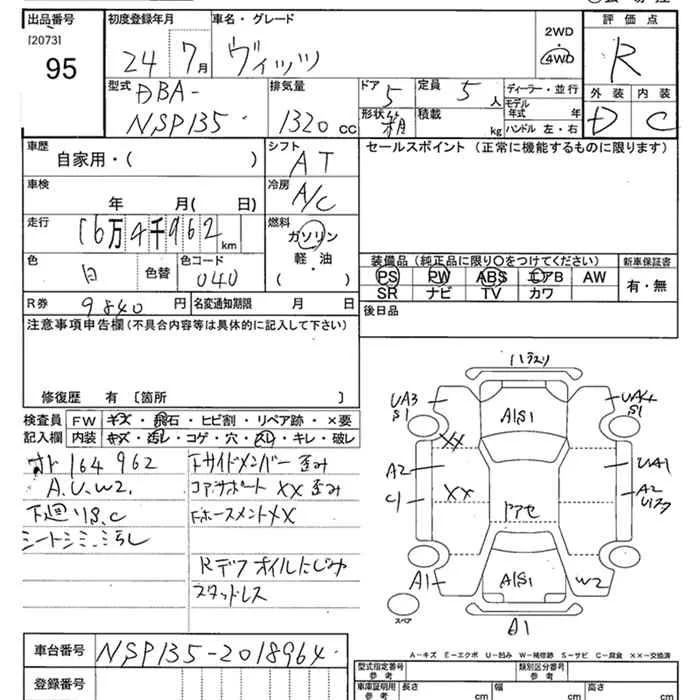 出品番号 初度登録年月 車名・グレード 2WD 4WD 評価点
[2073] 95 24年 7月 ヴィッツ R
外装 内装
D C
型式 DBA- NSP135 排気量 1320 cc ドア 5 形状 箱 定員 5人 積載 kg ディーラー・並行 モデル年式 年 ハンドル 左・右
車歴 自家用・( ) シフト AT セールスポイント (正常に機能するものに限ります)
車検 年 月( 日) 冷房 A/C
走行 16万4千962 km 燃料 ガソリン 軽・油 ( ・ )
色 白 色替 色コード 040
装備品 (純正品に限り〇をつけてください) 新車保証書
PS PW ABS エアB AW 有・無
SR ナビ TV カワ
R券 9840 円 名変通知期限 月 日 後日品
注意事項申告欄 (不具合内容等は具体的に記入して下さい)
修復歴 有 〔箇所 〕
検査員 FW キズ・飛石・ヒビ割・リペア跡・×要
記入欄 内装 キズ・汚レ・コゲ・穴・スレ・キレ・破レ
164962 Fサイドメンバー歪み
A.U.W2. コアサポートXX歪み
下廻りS.C Fホースメント XX
シートシミ・汚レ
Rデフオイルにじみ
スタッドレス
UA3 S1
A1S1
UA4 S1
XX
A2
UA1
XX
A2
ドアセ
A1
A1S1
W2
スペア
A1
A-キズ E-エクボ U-凹み W-補修跡 S-サビ C-腐食 XX-交換済
車台番号 NSP135-2018964
登録番号
型式指定番号 参考 類別区分番号 参考
車庫証明用 参考 長さ cm 幅 cm 高さ cm